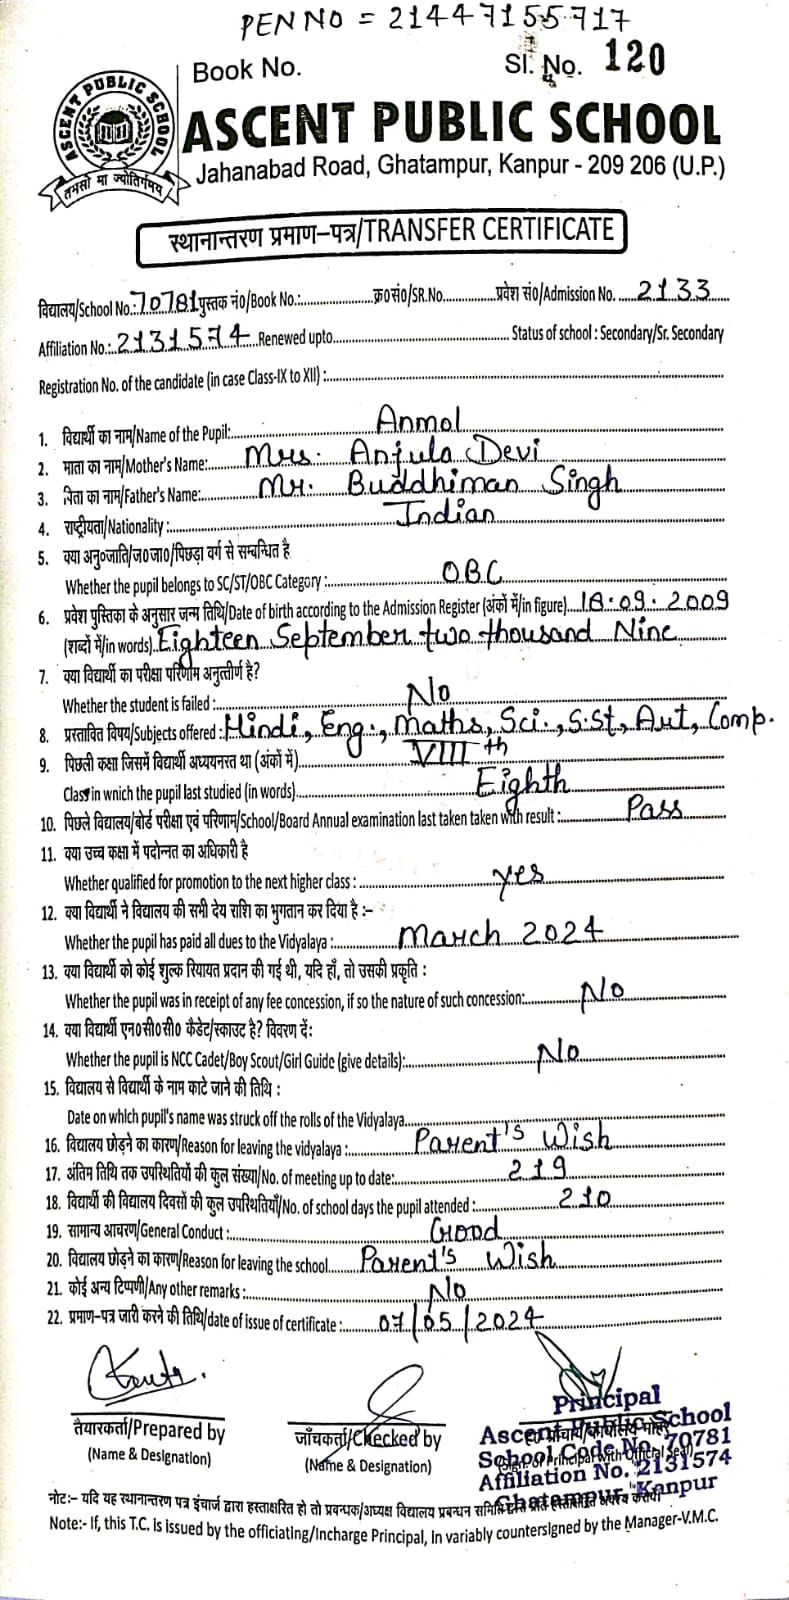 PEN NO = 21447155717
Book No. Sl. No. 120
ASCENT PUBLIC SCHOOL
तमसो मा ज्योतिर्गमय
ASCENT PUBLIC SCHOOL
Jahanabad Road, Ghatampur, Kanpur - 209 206 (U.P.)
स्थानान्तरण प्रमाण-पत्र/TRANSFER CERTIFICATE
विद्यालय/School No.:70781 पुस्तक नं0/Book No.:.......... क्र0सं0/SR.No........... प्रवेश सं0/Admission No. ..... 2133
Affiliation No.:.2131574 Renewed upto.......... Status of school : Secondary/Sr. Secondary
Registration No. of the candidate (in case Class-IX to XII) :..........
1. विद्यार्थी का नाम/Name of the Pupil:.......... Anmol
2. माता का नाम/Mother's Name:.......... Mrs. Anjula Devi
3. पिता का नाम/Father's Name:.......... Mr. Buddhiman Singh
4. राष्ट्रीयता/Nationality :.......... Indian
5. क्या अनु0जाति/ज0जा0/पिछड़ा वर्ग से सम्बन्धित है
Whether the pupil belongs to SC/ST/OBC Category :.......... OBC
6. प्रवेश पुस्तिका के अनुसार जन्म तिथि/Date of birth according to the Admission Register (अंकों में/in figure).... 18.09.2009
(शब्दों में/in words). Eighteen September two thousand Nine
7. क्या विद्यार्थी का परीक्षा परिणाम अनुत्तीर्ण है?
Whether the student is failed :.......... No
8. प्रस्तावित विषय/Subjects offered : Hindi, Eng., Maths, Sci., S.St, Art, Comp.
9. पिछली कक्षा जिसमें विद्यार्थी अध्ययनरत था (अंकों में).......... VIII th
Class in which the pupil last studied (in words).......... Eighth
10. पिछले विद्यालय/बोर्ड परीक्षा एवं परिणाम/School/Board Annual examination last taken taken with result :.......... Pass
11. क्या उच्च कक्षा में पदोन्नत का अधिकारी है
Whether qualified for promotion to the next higher class :.......... yes
12. क्या विद्यार्थी ने विद्यालय की सभी देय राशि का भुगतान कर दिया है :-
Whether the pupil has paid all dues to the Vidyalaya :.......... March 2024
13. क्या विद्यार्थी को कोई शुल्क रियायत प्रदान की गई थी, यदि हाँ, तो उसकी प्रकृति :
Whether the pupil was in receipt of any fee concession, if so the nature of such concession:.......... No
14. क्या विद्यार्थी एन0सी0सी0 कैडेट/स्काउट है? विवरण दें:
Whether the pupil is NCC Cadet/Boy Scout/Girl Guide (give details):.......... No
15. विद्यालय से विद्यार्थी के नाम काटे जाने की तिथि :
Date on which pupil's name was struck off the rolls of the Vidyalaya..........
16. विद्यालय छोड़ने का कारण/Reason for leaving the vidyalaya :.......... Parent's Wish
17. अंतिम तिथि तक उपस्थितियों की कुल संख्या/No. of meeting up to date:.......... 219
18. विद्यार्थी की विद्यालय दिवसों की कुल उपस्थितियाँ/No. of school days the pupil attended :.......... 210
19. सामान्य आचरण/General Conduct :.......... Good
20. विद्यालय छोड़ने का कारण/Reason for leaving the school.......... Parent's Wish
21. कोई अन्य टिप्पणी/Any other remarks :.......... No
22. प्रमाण-पत्र जारी करने की तिथि/date of issue of certificate :.......... 07/05/2024
तैयारकर्ता/Prepared by
(Name & Designation)
जाँचकर्ता/Checked by
(Name & Designation)
Principal
Ascent Public School
School Code No. 70781
Affiliation No. 2131574
Ghatampur, Kanpur
नोट:- यदि यह स्थानान्तरण पत्र इंचार्ज द्वारा हस्ताक्षरित हो तो प्रबन्धक/अध्यक्ष विद्यालय प्रबन्धन समिति
Note:- If, this T.C. is issued by the officiating/Incharge Principal, In variably countersigned by the Manager-V.M.C.